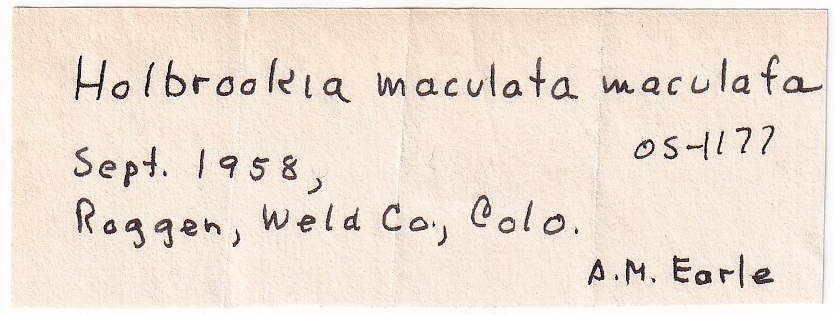 Holbrookia maculata maculata
OS-1177
Sept. 1958,
Roggen, Weld Co., Colo.
A.M. Earle